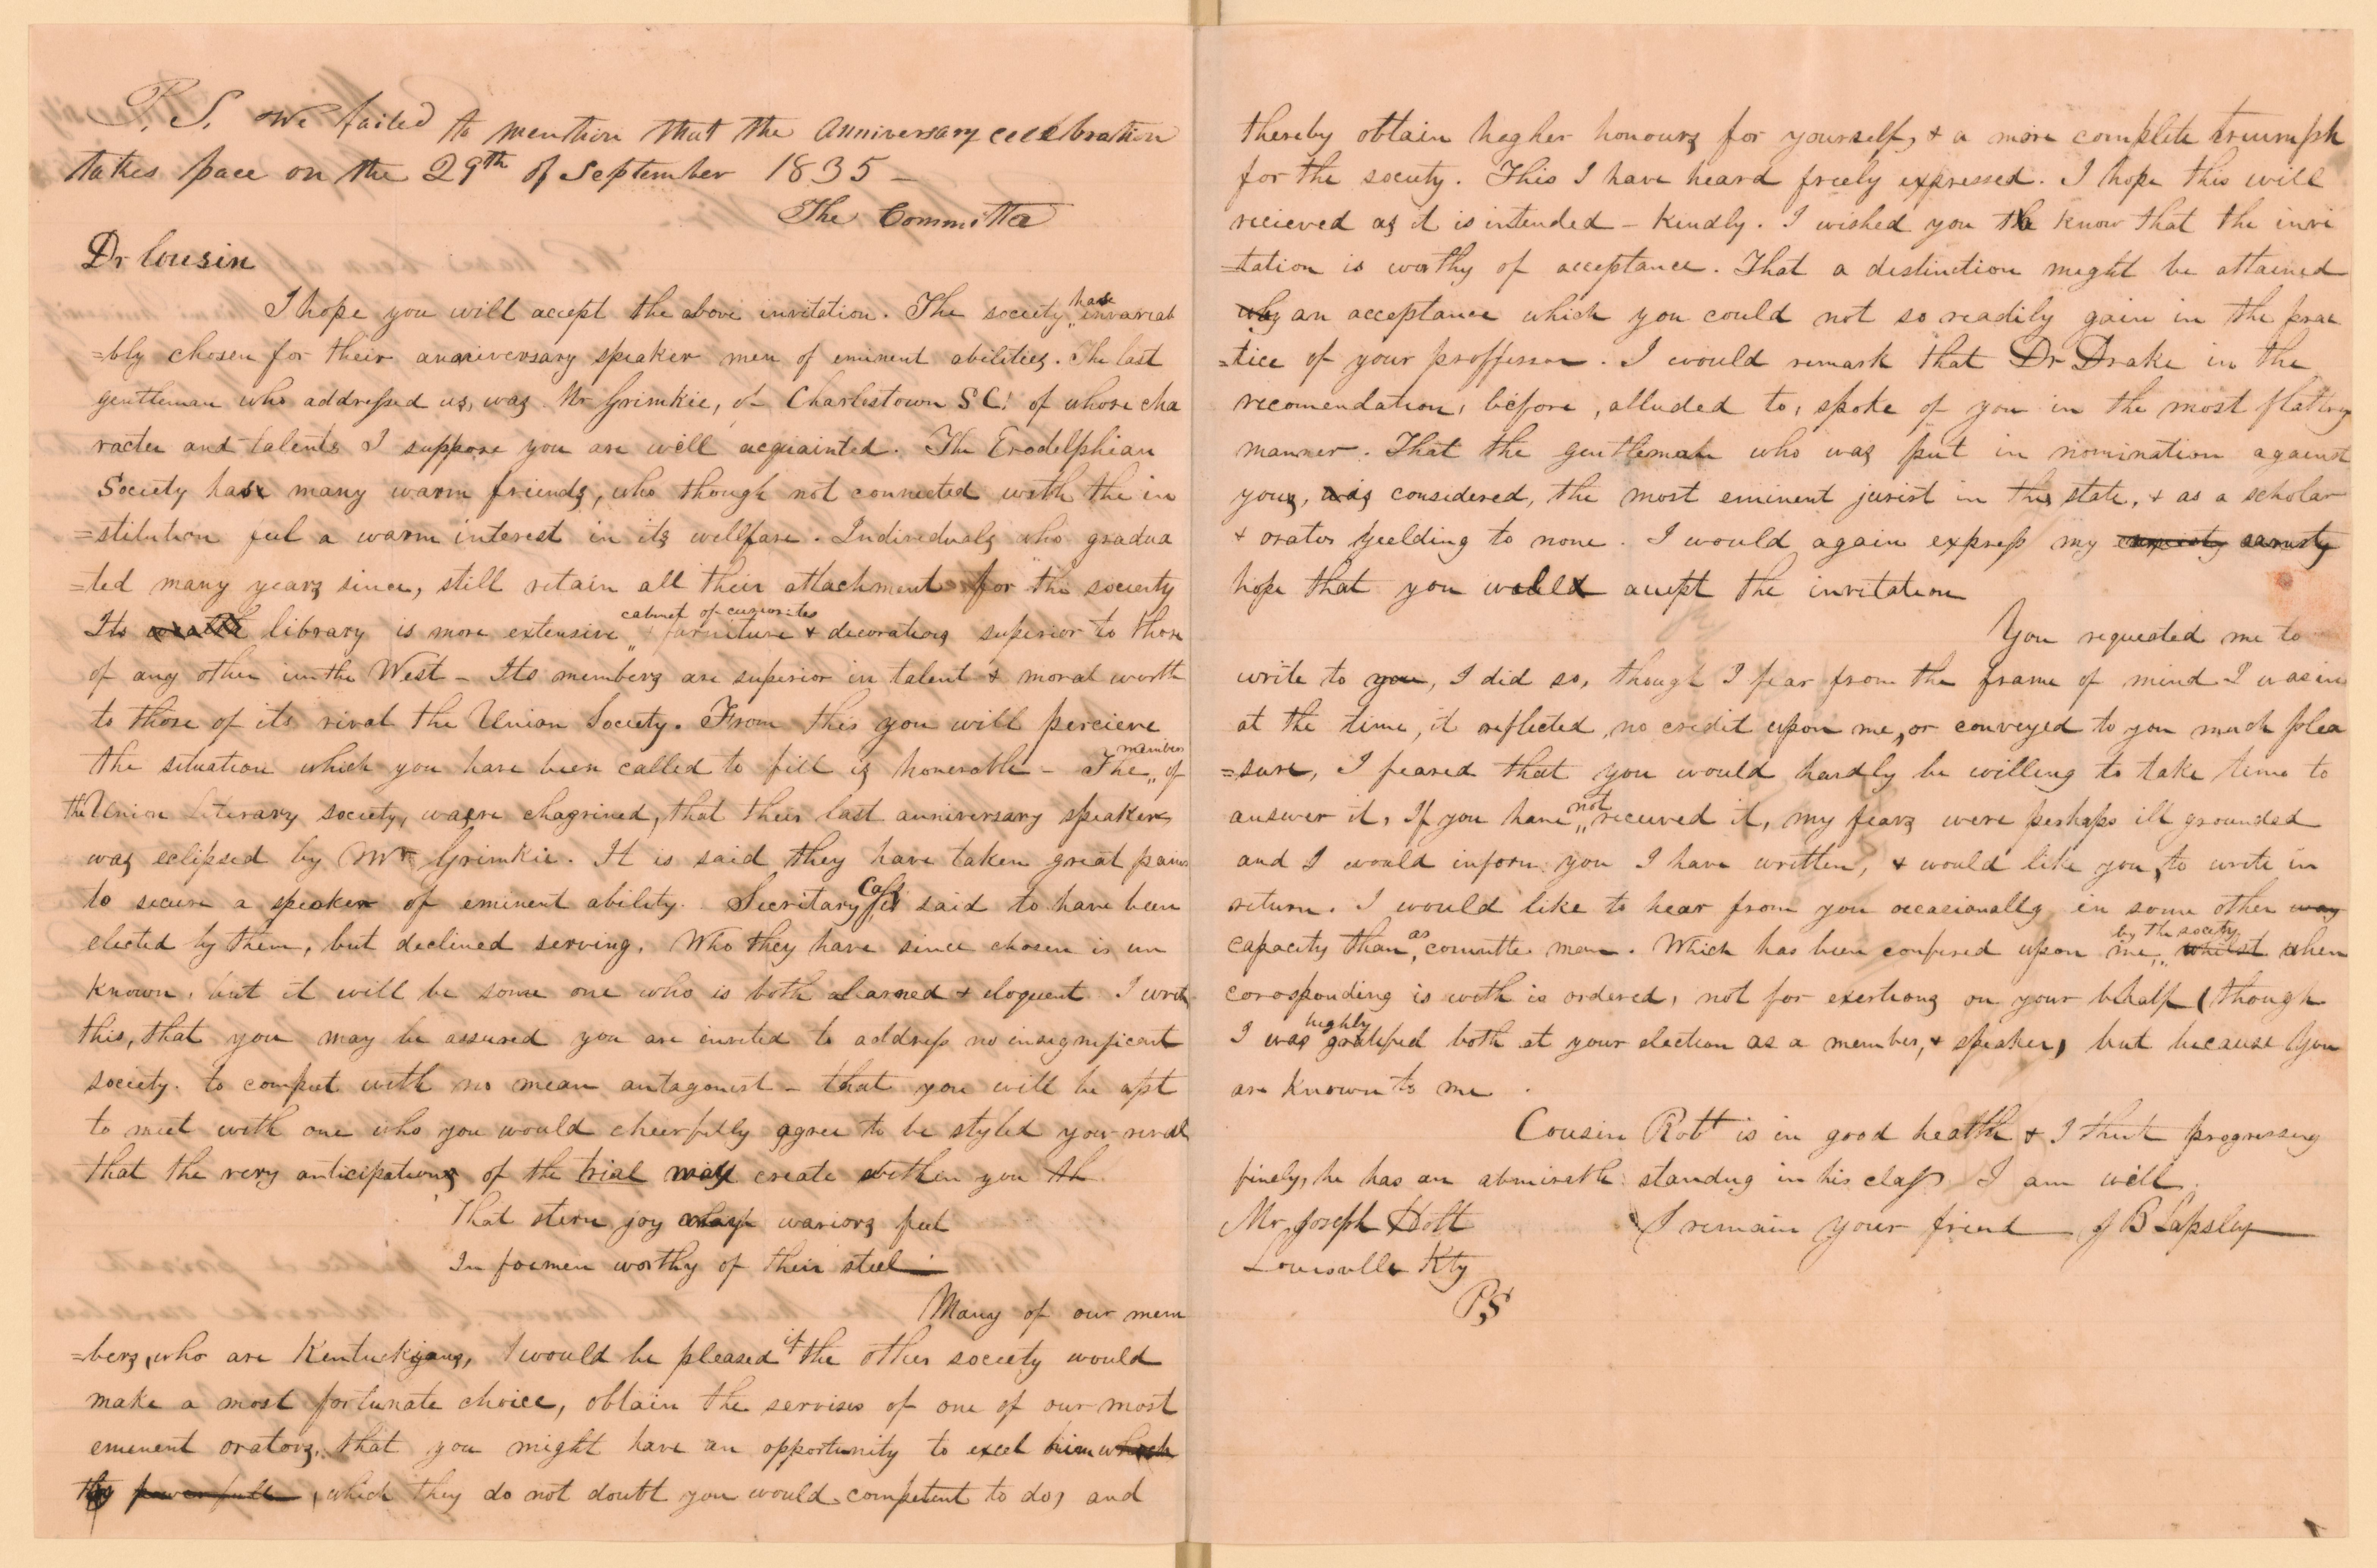 P. S. We failed to mention that the anniversary celebration
takes pace on the 29th of September 1835 –
The Committee
Dr Cousin
I hope you will accept the above invitation. The society have invariab
=bly chosen for their anniversary speaker men of eminent abilities. The last
gentleman who addressed us, was Mr Grimkie, of Charlestown SC. of whose cha
racter and talents I suppose you are well acquainted. The Erodelphian
Society has many warm friends, who though not connected with the in
=stitution feel a warm interest in its wellfare. Individuals who gradua
=ted many years since, still retain all their attachment for the society
Its library is more extensive cabinet of curiosites furniture & decorations superior to those
of any other in the West – Its members are superior in talent & moral worth
to those of its rival the Union Society. From this you will percieve
the situation which you have been called to fill is honorable – The members of
the Union Literary society, were chagrined, that their last anniversary speaker
was eclipsed by Mr Grimkie. It is said they have taken great pains
to secure a speaker of eminent ability. Secretary Cass is said to have been
elected by them, but declined serving. Who they have since chosen is un
known, but it will be some one who is both learned & eloquent I write
this, that you may be assured you are invited to address no insignificant
society. to compeet with no mean antagonist – that you will be apt
to meet with one who you would cheerfully agree to be styled your rival
that the very anticipations of the trial may create within you th
That stern joy which wariors feel
In foemen worthy of their steel –
Many of our mem
=bers, who are Kentuckyans, would be pleased if the other society would
make a most fortunate choice, obtain the servises of one of our most
eminent orators, that you might have an opportunity to excel him which
they powerfull, which they do not doubt you would competent to do, and
thereby obtain hegher honours for yourself, & a more complete triumph
for the society. This I have heard freely expressed. I hope this will
recieved as it is intended – kindly. I wished you the know that the invi
=tation is worthy of acceptance. That a destinction meght be attained
by an acceptance which you could not so readily gain in the prac
=tice of your proffession. I would remark that Dr Drake in the
recomendation, before, alluded to, spoke of you in the most flattery
manner. That the gentleman who was put in nomination against
yous, was considered, the most eminent jurist in this state, & as a scholar
& orator yeelding to none. I would again express my earnesty
hope that you would accept the invitation
You requested me to
write to you, I did so, though I fear from the frame of mind I was in
at the time, it reflected no credit upon me, or conveyed to you much plea
=sure, I feared that you would hardly be willing to take time to
answer it, If you have not received it, my fears were perhaps ill grounded
and I would inform you I have written, & would like you, to write in
return. I would like to hear from you occasionally in some other way
capacity than as committe man. Which has been confered upon me by the society, whilst when
corosponding is with is ordered, not for exertions on your behalf (though
I was highly gratified both at your election as a member, & speaker) but because you
are known to me.
Cousin Robt is in good health & I think progressing
finely, he has an admirable standing in his class I am well.
Mr Joseph Holt I remain your friend J B Lapsley
Louisville Kty
PS